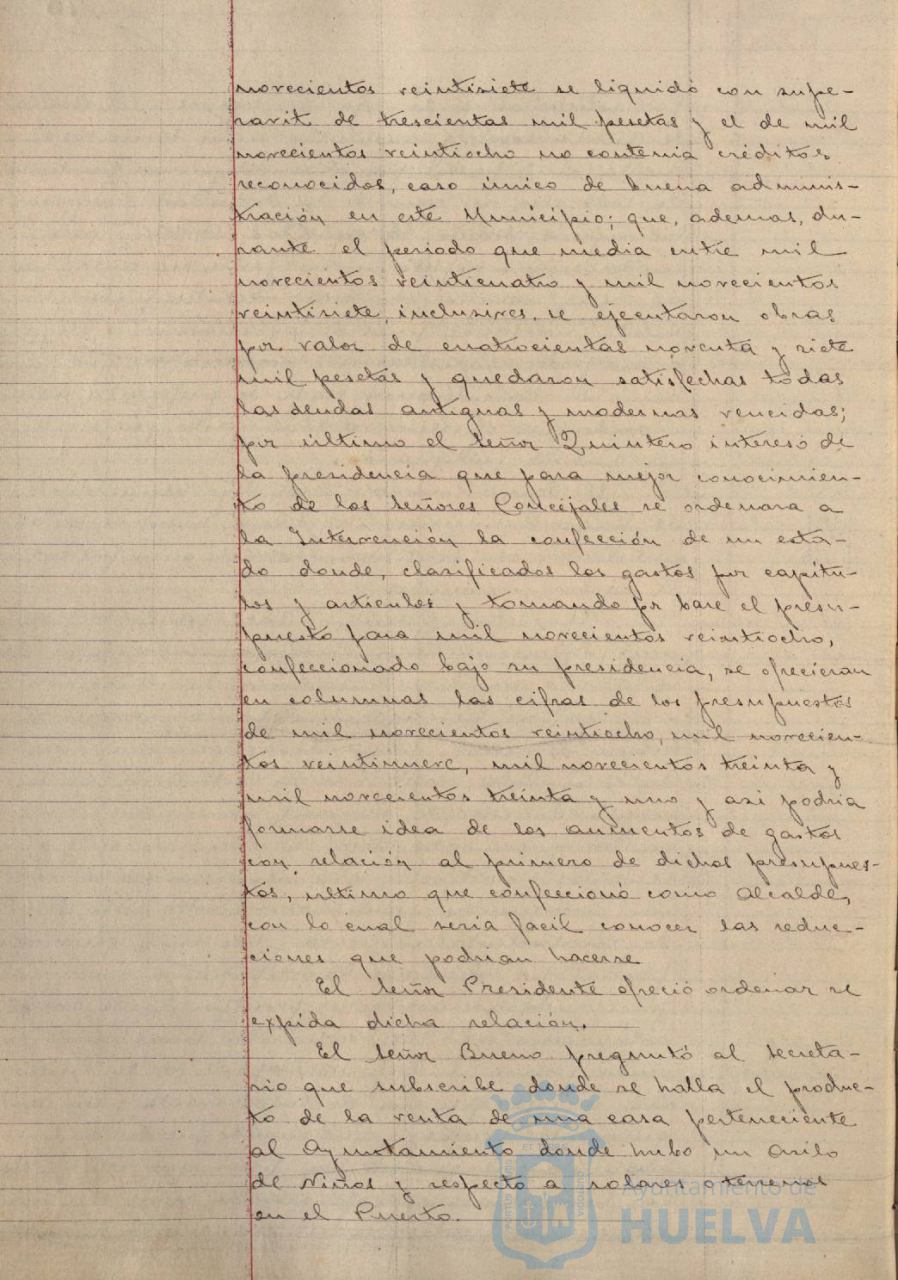 novecientos veintisiete se liquidó con supe-
ravit de trescientas mil pesetas y el de mil
novecientos veintiocho no contenia créditos
reconocidos, caso único de buena adminis-
tración en este Municipio; que, ademas, du-
rante el periodo que media entre mil
novecientos veinticuatro y mil novecientos
veintisiete, inclusives, se ejecutaron obras
por valor de cuatrocientas noventa y siete
mil pesetas y quedaron satisfechas todas
las deudas antiguas y modernas vencidas;
por último el señor Quintero interesó de
la presidencia que para mejor conocimien-
to de los señores Concejales se ordenara a
la Intervención la confección de un esta-
do donde, clasificados los gastos por capitu-
los y articulos y tomando por base el presu-
puesto para mil novecientos veintiocho,
confeccionado bajo su presidencia, se ofrecieran
en columnas las cifras de los presupuestos
de mil novecientos veintiocho, mil novecien-
tos veintinueve, mil novecientos treinta y
mil novecientos treinta y uno y asi podria
formarse idea de los aumentos de gastos
con relación al primero de dichos presupues-
tos, ultimo que confeccionó como Alcalde,
con lo cual seria facil conocer las reduc-
ciones que podrian hacerse
El señor Presidente ofreció ordenar se
expida dicha relación.
El señor Bueno preguntó al secreta-
rio que subscribe donde se halla el produc-
to de la venta de una casa perteneciente
al Ayuntamiento donde hubo un Asilo
de Niños y respecto a solares o terrenos
en el Puerto.
Ayuntamiento de
HUELVA